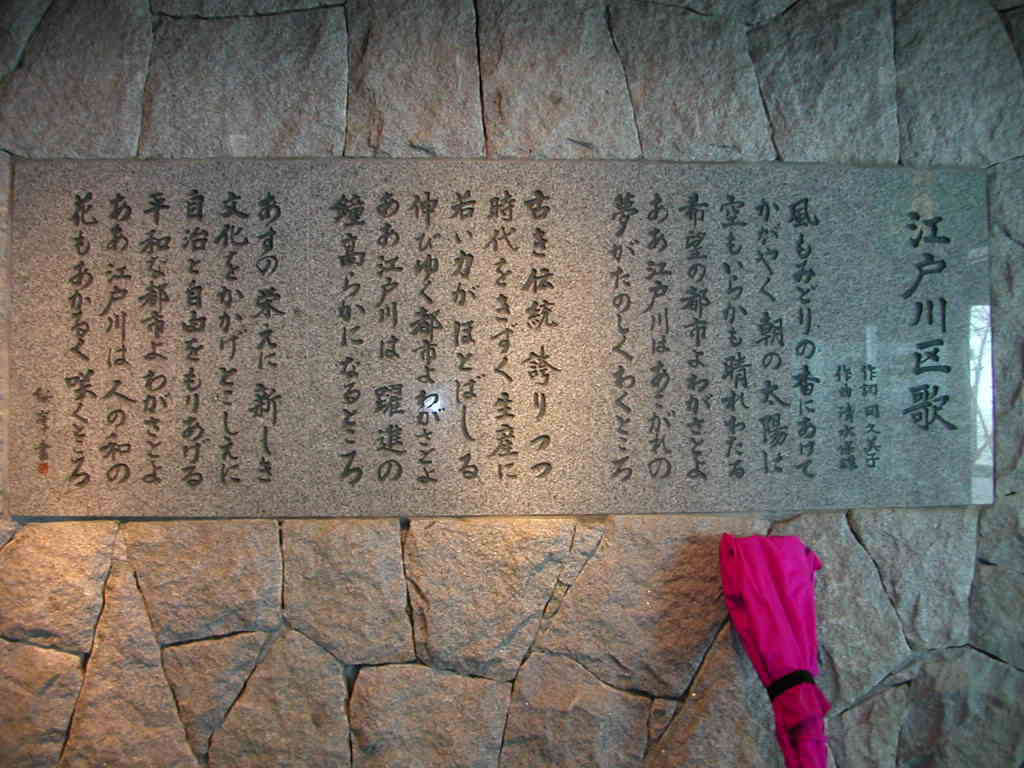 江戸川区歌
作詞 岡久美子
作曲 清水保雄
風もみどりの香にあけて
かがやく朝の太陽は
空もいらかも晴れわたる
希望の都市よわがさとよ
ああ江戸川はあこがれの
夢がたのしくわくところ
古き伝統 誇りつつ
時代をきずく生産に
若い力が ほとばしる
伸びゆく都市よわがさとよ
ああ江戸川は 躍進の
鐘高らかになるところ
あすの栄えに 新しき
文化をかかげとこしえに
自治と自由をもりあげる
平和な都市よわがさとよ
ああ江戸川は人の和の
花もあかるく咲くところ